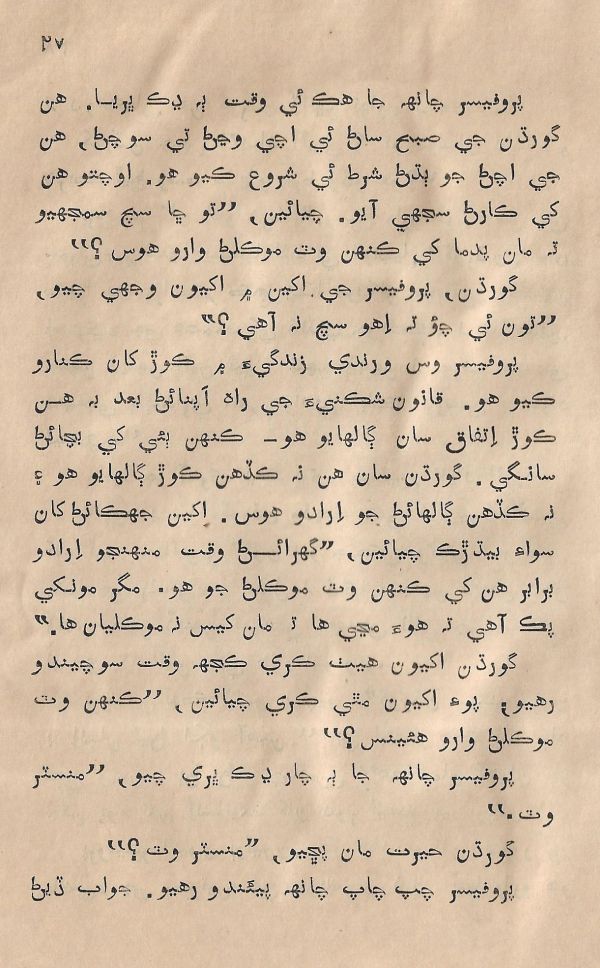 ۲۷
پروفيسر چانهہ جا هڪ ئي وقت ٻہ ڍڪ ڀريا. هن
گورڌن جي صبح ساڻ ئي اچي وڃڻ تي سوچڻ, هن
جي اچڻ جو ٻڌڻ شرط ئي شروع ڪيو هو. اوچتو هن
کي ڪارڻ سجهي آيو. چيائين, ”تو ڇا سچ سمجهيو
تہ مان پدما کي ڪنهن وٽ موڪلڻ وارو هوس ؟“
گورڌن, پروفيسر جي اکين ۾ اکيون وجهي چيو,
”تون ئي چؤ تہ اِهو سچ نہ آهي ؟“
پروفيسر وس ورندي زندگيءَ ۾ ڪوڙ کان ڪنارو
ڪيو هو. قانون شڪنيءَ جي راه اَپنائڻ بعد بہ هن
ڪوڙ اِتفاق سان ڳالهايو هو– ڪنهن ٻئي کي بچائڻ
سانگي. گورڌن سان هن نہ ڪڏهن ڪوڙ ڳالهايو هو ۽
نہ ڪڏهن ڳالهائڻ جو اِرادو هوس. اکين جهڪائڻ کان
سواءِ بيڌڙڪ چيائين, ”گهرائڻ وقت منهنجو اِرادو
برابر هن کي ڪنهن وٽ موڪلڻ جو هو. مگر مونکي
پڪ آهي تہ هوءَ مڃي ها تہ مان ڪيس نہ موڪليان ها.“
گورڌن اکيون هيٺ ڪري ڪجهہ وقت سوچيندو
رهيو؛ پوءِ اکيون مٿي ڪري چيائين, ”ڪنهن وٽ
موڪلڻ وارو هئينس ؟“
پروفيسر چانهہ جا ٻہ چار ڍڪ ڀري چيو, ”منسٽر
وٽ.“
گورڌن حيرت مان پڇيو, ”منسٽر وٽ ؟“
پروفيسر چپ چاپ چانهہ پيئندو رهيو. جواب ڏيڻ